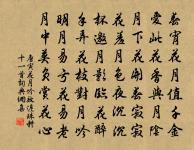 春宵花月值千金
愛此花香與月陰
月下花開春寂寂
花羞月色夜沉沉
杯邀月影臨花醉
手弄花枝對月吟
明月易虧花易老
月中莫負賞花心
唐寅花月吟效連珠體
十一首詞典網集